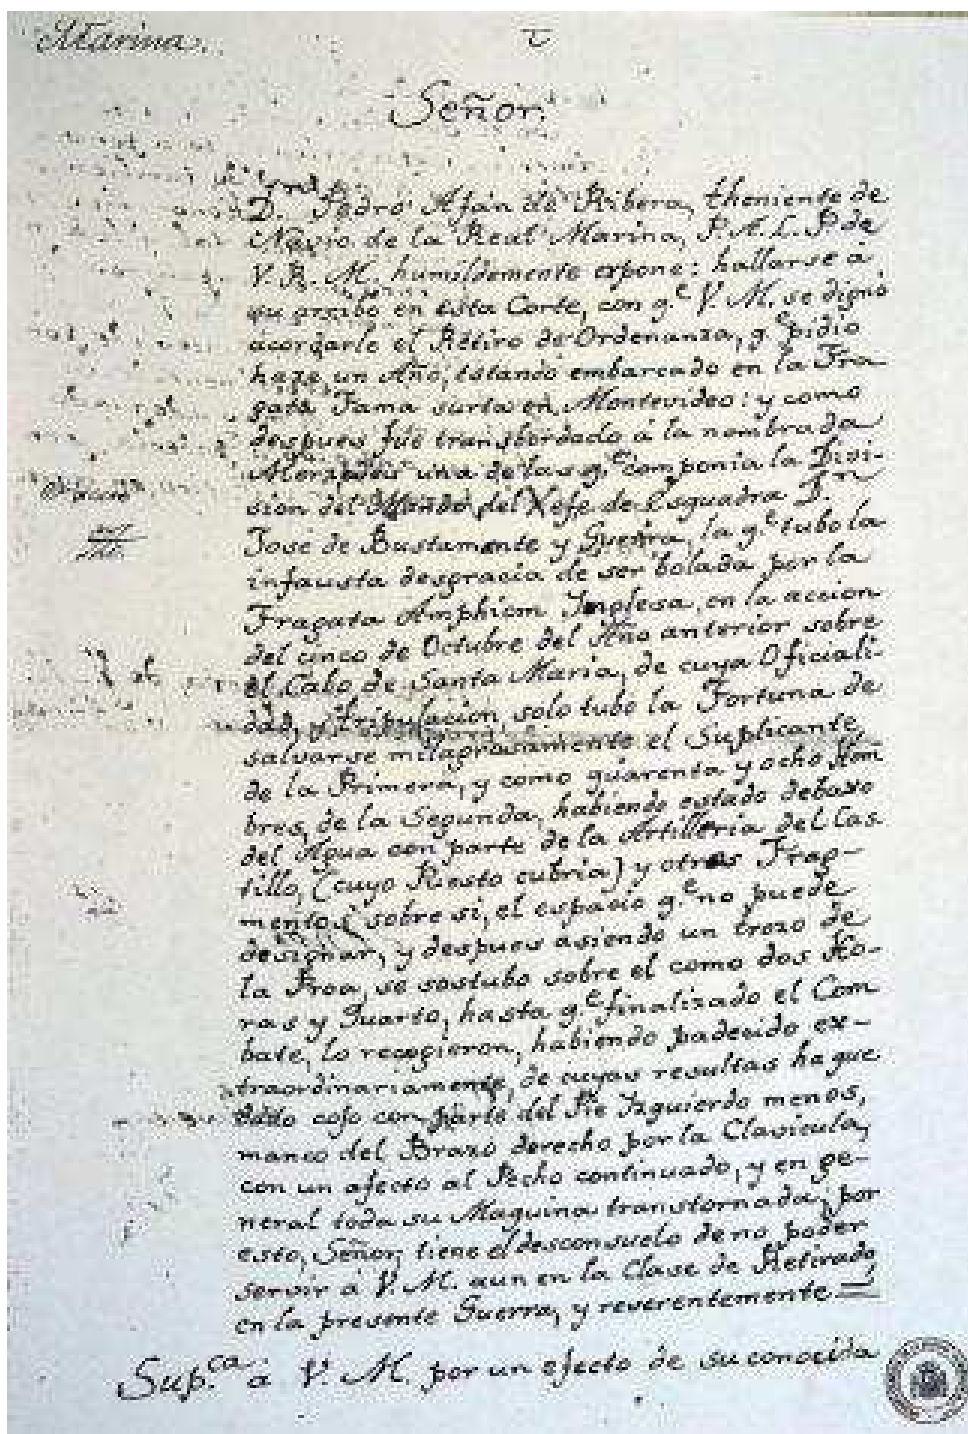 Marina.
Señor.
D.ⁿ Pedro Afán de Ribera, theniente de
Navio de la Real Marina, P. A. L. P. de
V. R. M. humildemente expone: hallarse á
su arribo en esta Corte, con q.ᵉ V. M. se dignó
acordarle el Retiro de Ordenanza, q.ᵉ pidio
haze un Año, estando embarcado en la Fra-
gata Fama surta en Montevideo: y como
despues fué transbordado á la nombrada
Mercedes una de las q.ᵉ componia la Divi-
sion del Mando del Xefe de Esquadra D.ⁿ
José de Bustamente y Guerra, la q.ᵉ tubo la
infausta desgracia de ser bolada por la
Fragata Amphiom Inglesa, en la accion
del cinco de Octubre del Año anterior sobre
el Cabo de Santa Maria, de cuya Oficiali-
dad, y tripulacion, solo tubo la Fortuna de
salvarse milagrosamente el Suplicante,
de la Primera, y como quarenta y ocho Hom
bres, de la Segunda, habiendo estado debaxo
del Agua con parte de la Artilleria del Cas
tillo, (cuyo Puesto cubria) y otros Frag-
mentos sobre si, el espacio q.ᵉ no puede
designar, y despues asiendo un trozo de
la Proa, se sostubo sobre el como dos Ho-
ras y Quarto, hasta q.ᵉ finalizado el Com
bate, lo recogieron, habiendo padecido ex-
traordinariamente, de cuyas resultas ha que
dado cojo con parte del Pie Izquierdo menos,
manco del Brazo derecho por la Clavicula,
con un afecto al Pecho continuado, y en ge-
neral toda su Maquina transtornada; por
esto, Señor, tiene el desconsuelo de no poder
servir á V. M. aun en la Clase de Retirado,
en la presente Guerra, y reverentemente =
Sup.ᶜᵃ á V. M. por un efecto de su conocida